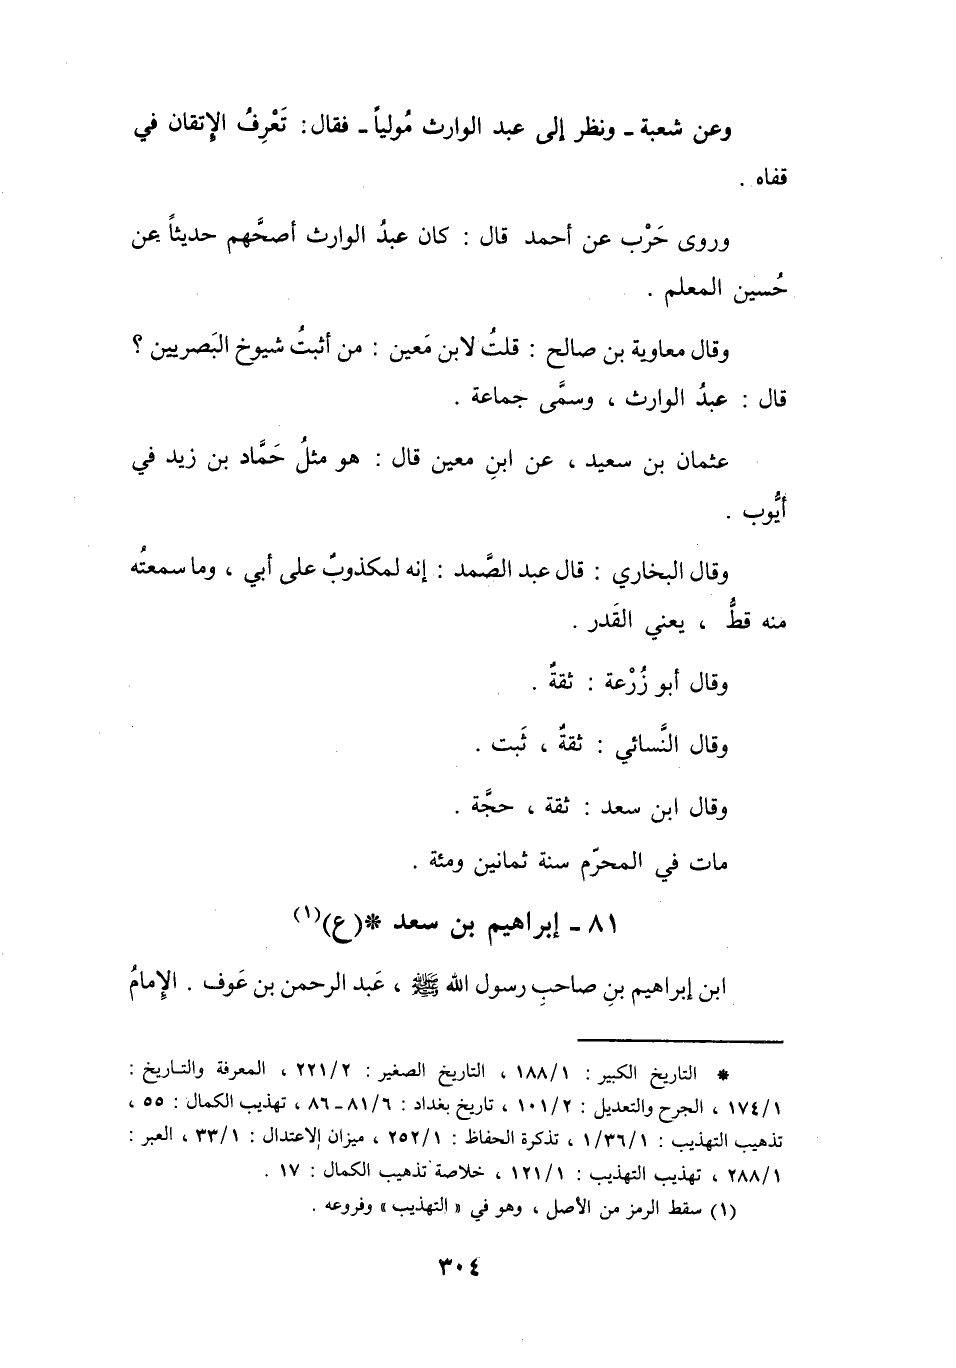 وعن شعبة ـ ونظر إلى عبد الوارث مُولياً ـ فقال : تَعْرِفُ الإتقان في
قفاه .
وروى حَرْب عن أحمد قال : كان عبدُ الوارث أصحَّهم حديثاً عن
حُسين المعلم .
وقال معاوية بن صالح : قلتُ لابن مَعين : من أثبتُ شيوخ البَصريين ؟
قال : عبدُ الوارث ، وسمَّى جماعة .
عثمان بن سعيد ، عن ابنِ معين قال : هو مثلُ حَمَّاد بن زيد في
أيُّوب .
وقال البخاري : قال عبد الصَّمد : إنه لمكذوبٌ على أبي ، وما سمعتُه
منه قطُّ ، يعني القَدر .
وقال أبو زُرْعة : ثقةٌ .
وقال النَّسائي : ثقةٌ ، ثَبت .
وقال ابن سعد : ثقة ، حجَّة .
مات في المحرّم سنة ثمانين ومئة .
٨١ ـ إبراهيم بن سعد *(ع)(١)
ابن إبراهيم بنِ صاحبِ رسول الله ﷺ ، عَبد الرحمن بن عَوف . الإِمامُ
* التاريخ الكبير : ١/١٨٨ ، التاريخ الصغير : ٢/٢٢١ ، المعرفة والتاريخ :
١/١٧٤ ، الجرح والتعديل : ٢/١٠١ ، تاريخ بغداد : ٦/٨١ـ٨٦ ، تهذيب الكمال : ٥٥ ،
تذهيب التهذيب : ١/٣٦/١ ، تذكرة الحفاظ : ١/٢٥٢ ، ميزان الاعتدال : ١/٣٣ ، العبر :
١/٢٨٨ ، تهذيب التهذيب : ١/١٢١ ، خلاصة تذهيب الكمال : ١٧ .
(١) سقط الرمز من الأصل ، وهو في « التهذيب » وفروعه .
٣٠٤